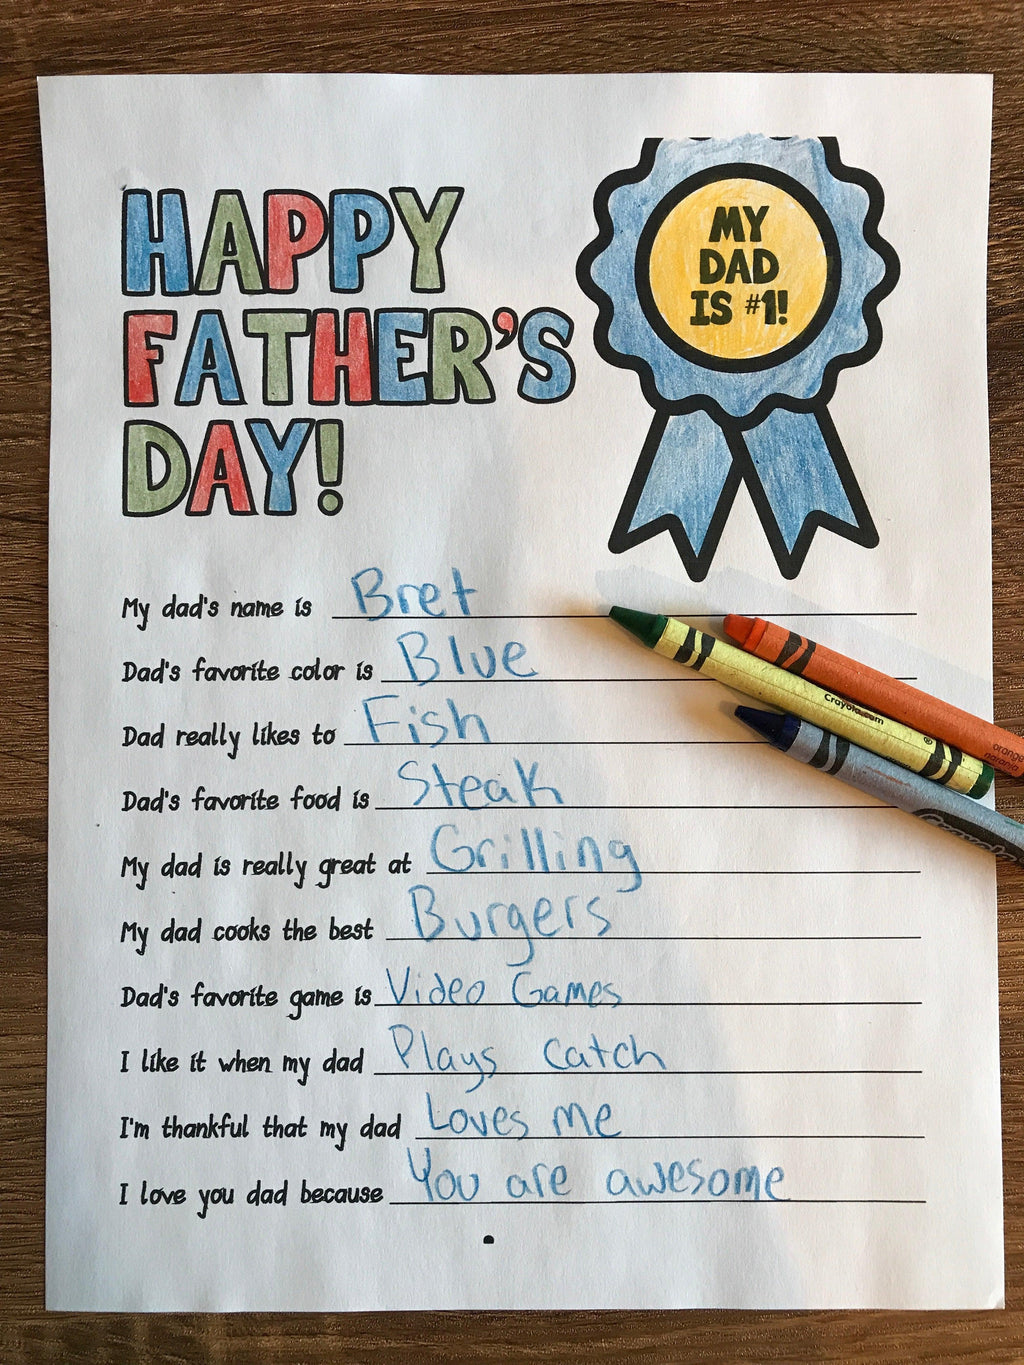 HAPPY
FATHER'S
DAY!
MY
DAD
IS #1!
My dad's name is Bret
Dad's favorite color is Blue
Dad really likes to Fish
Dad's favorite food is Steak
My dad is really great at Grilling
My dad cooks the best Burgers
Dad's favorite game is Video Games
I like it when my dad Plays catch
I'm thankful that my dad Loves me
I love you dad because You are awesome
Crayola.com
®
orange
naranja